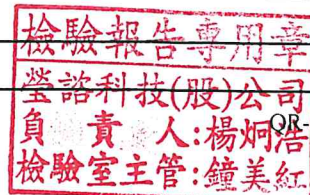 檢驗報告專用章
瑩諮科技(股)公司
QR-
負責人:楊炯浩
檢驗室主管:鐘美紅